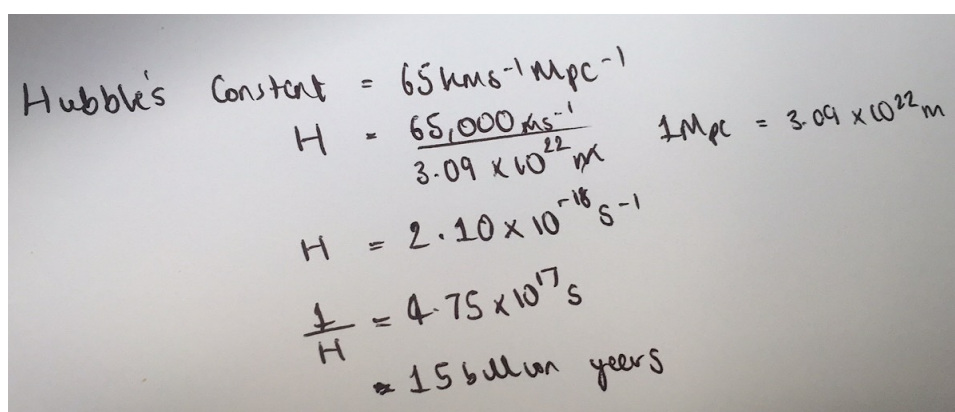 Hubble's Constant = 65 kms⁻¹ Mpc⁻¹
H = 65,000 ms⁻¹ / 3.09 x 10²² m 1 Mpc = 3.09 x 10²² m
H = 2.10 x 10⁻¹⁸ s⁻¹
1/H = 4.75 x 10¹⁷ s
= 15 billion years